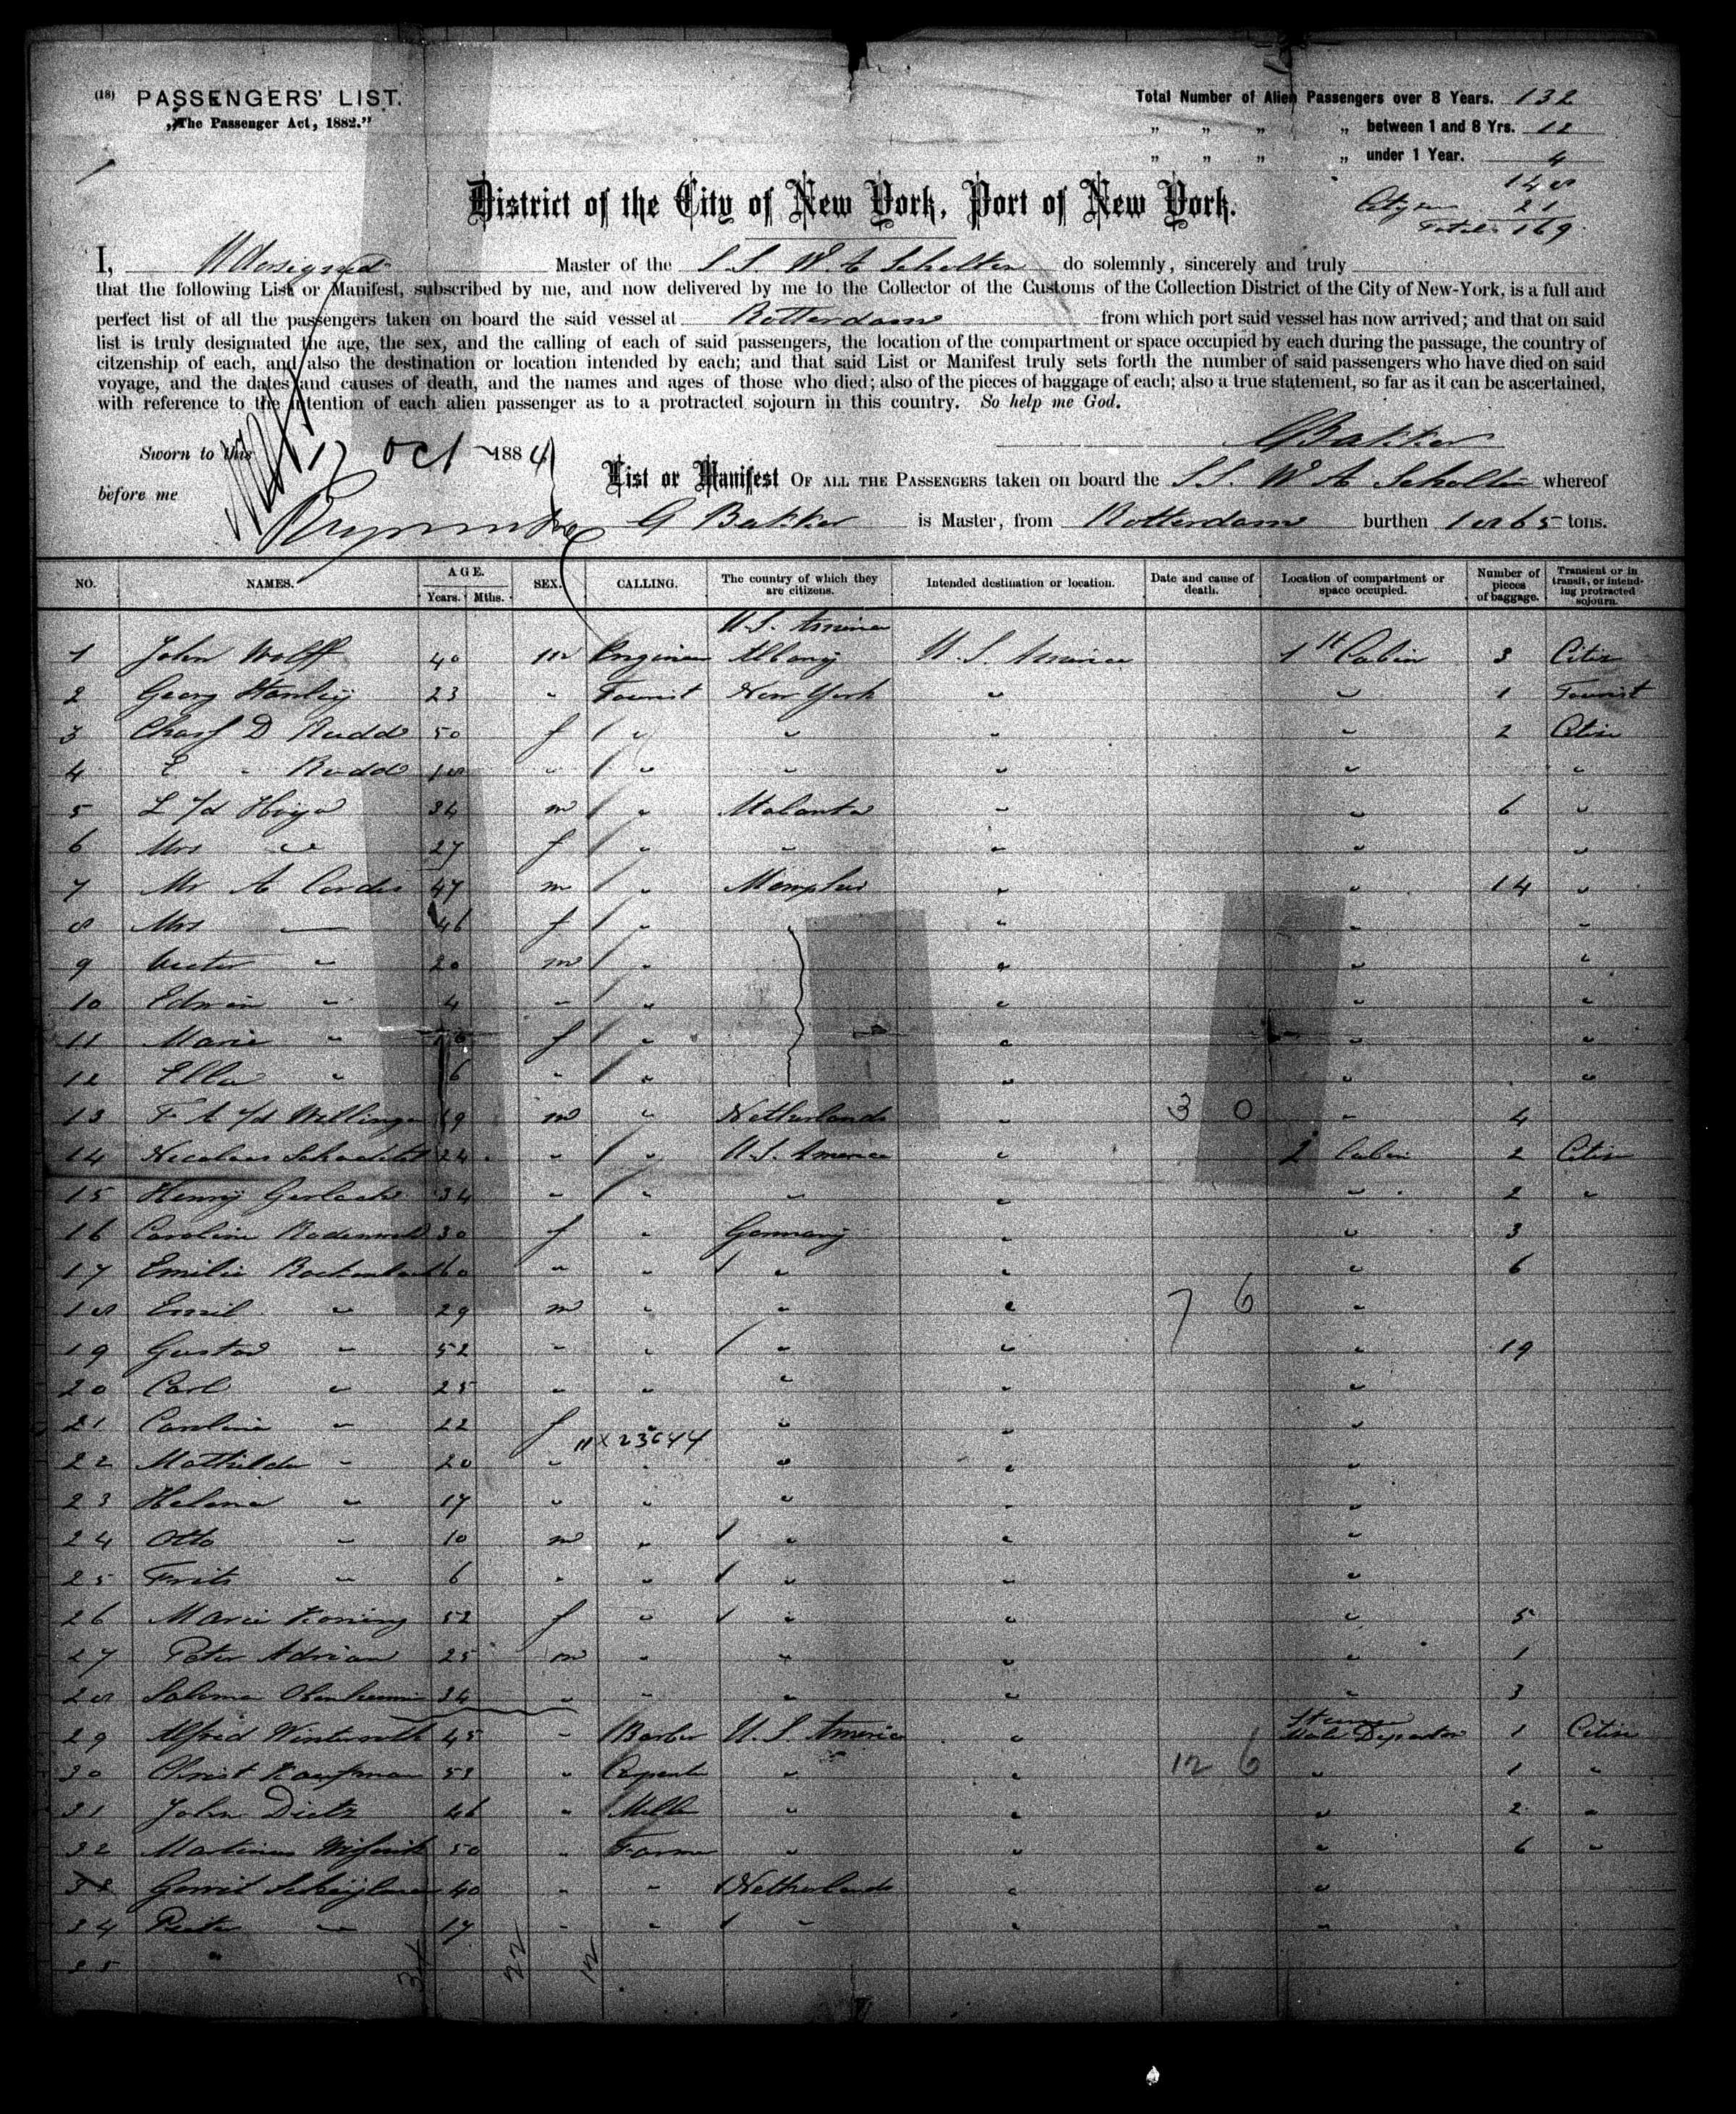 (18) PASSENGERS' LIST.
„The Passenger Act, 1882."
Total Number of Alien Passengers over 8 Years. 132
„ „ „ „ between 1 and 8 Yrs. 12
„ „ „ „ under 1 Year. 4
148
21
Total 169
District of the City of New York, Port of New York.
I, Master of the S.S. W. A. Scholten do solemnly, sincerely and truly
that the following List or Manifest, subscribed by me, and now delivered by me to the Collector of the Customs of the Collection District of the City of New-York, is a full and
perfect list of all the passengers taken on board the said vessel at Rotterdam from which port said vessel has now arrived; and that on said
list is truly designated the age, the sex, and the calling of each of said passengers, the location of the compartment or space occupied by each during the passage, the country of
citzenship of each, and also the destination or location intended by each; and that said List or Manifest truly sets forth the number of said passengers who have died on said
voyage, and the dates and causes of death, and the names and ages of those who died; also of the pieces of baggage of each; also a true statement, so far as it can be ascertained,
with reference to the intention of each alien passenger as to a protracted sojourn in this country. So help me God.
G Bakker
Sworn to this 17 Oct 1884
before me
List or Manifest OF ALL THE PASSENGERS taken on board the S.S. W A Scholten whereof
G Bakker is Master, from Rotterdam burthen tons.
NO. NAMES. AGE. Years. Mths. SEX. CALLING. The country of which they are citizens. Intended destination or location. Date and cause of death. Location of compartment or space occupied. Number of pieces of baggage. Transient or in transit, or intending protracted sojourn.
U.S. America
1 John Wolff 40 m Engineer Albany U.S. America 1st Cabin 3 Citiz
2 Georg Stanley 23 " Tourist New York " " 1 Tourist
3 Chas D Rudd 50 f " " " " 2 Citiz
4 E " Rudd 18 " " " " " "
5 L v/d 34 m " " " 6 "
6 Mrs " 27 f " " " " "
7 Mr A Cordes 47 m " Memphis " " 14 "
8 Mrs — 46 f " " " "
9 " 20 m " " " "
10 Edwin " 4 " " " " "
11 Marie " f " " " "
12 Ella " 6 " " " " "
13 F A v/d 19 m " Netherlands " 3 0 " 4
14 Nicolaas 24 " " U.S. America " 2 Cabin 2 Citiz
15 Henry Gerlach 34 " " " " " 2 "
16 Caroline 30 f " Germany " " 3
17 Emilie 60 " " " " " 6
18 Emil " 29 m " " " 7 6 "
19 Gustav " 52 " " " " " 19
20 Carl " 25 " " " " "
21 Caroline " 22 f " " " "
11 X 23644
22 Mathilde " 20 " " " " "
23 Helene " 17 " " " " "
24 Otto " 10 m " " " "
25 Frits " 6 " " " " "
26 Marie Koning 52 f " " " " 5
27 Peter Adrian 25 m " " " " 1
28 34 " " " " " 3
29 Alfred 45 " Barber U.S. America " 1 Citiz
30 Christ Kaufman 53 " " " 12 6 " 1 "
31 John Dietz 46 " Miller " " " 2 "
32 50 " Farmer " " " 6 "
33 Gerrit 40 " " Netherlands " "
34 " 17 " " " " "
35 "
34 22 12